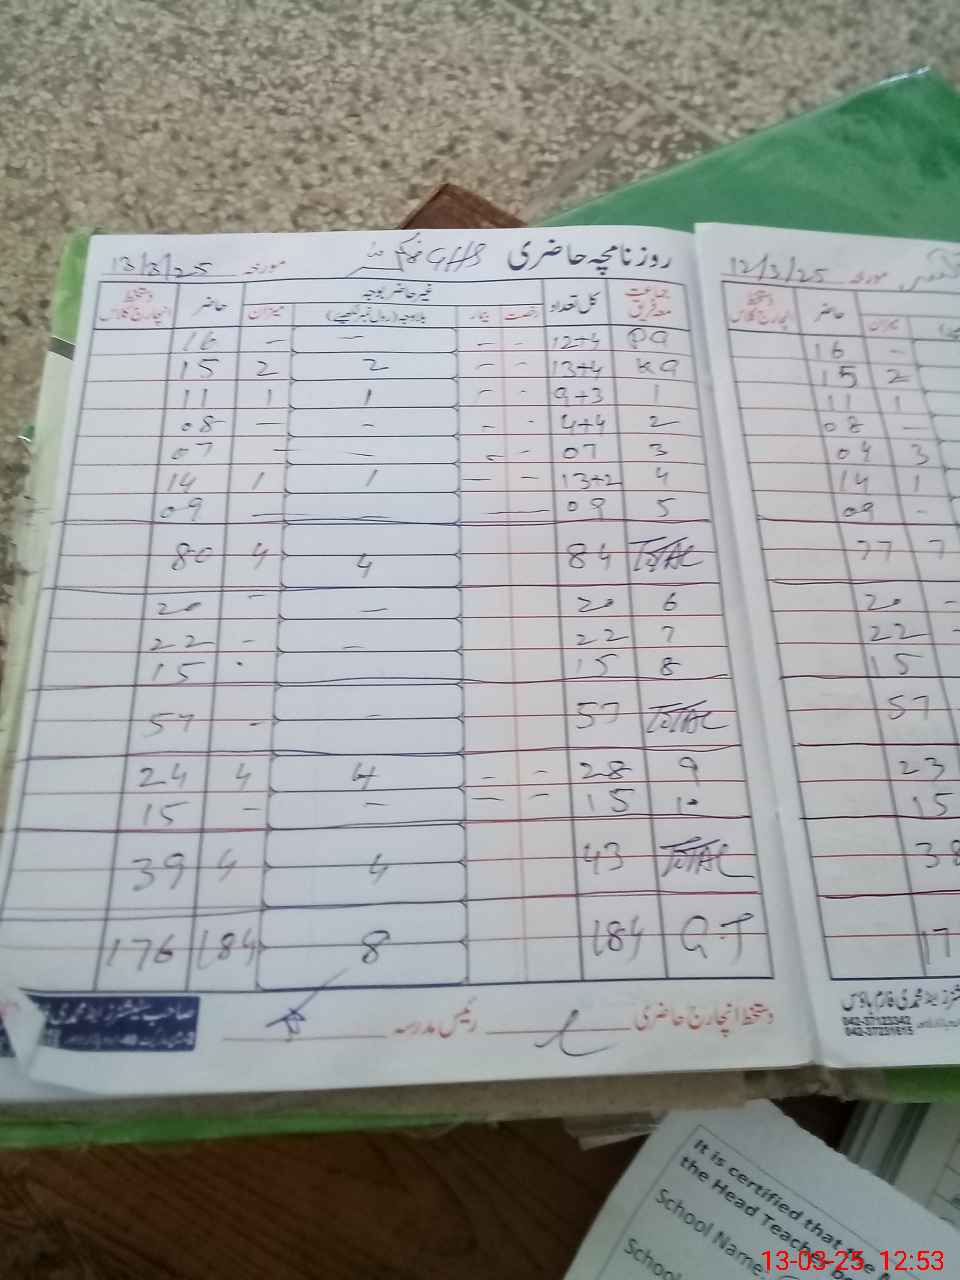 روزنامچہ حاضری GHS مورخہ 13/3/25
جماعت معہ فریق کل تعداد غیر حاضر بوجہ حاضر دستخط انچارج کلاس
رخصت بیمار بلاوجہ (رول نمبر لکھیے) میزان
PG 12+4 - - — — 16
KG 13+4 - - 2 2 15
1 9+3 - - 1 1 11
2 4+4 - - - — 08
3 07 - - — — 07
4 13+2 — — 1 1 14
5 09 — — — 09
TOTAL 84 4 4 80
6 20 — - 20
7 22 — - 22
8 15 - 15
TOTAL 57 - - 57
9 28 - - 4 4 24
10 15 - - — — 15
TOTAL 43 4 4 39
G.T 184 8 184 176
دستخط انچارج حاضری رئیس مدرسہ
مورخہ 12/3/25
حاضر دستخط انچارج کلاس
میزان
- 16
2 15
1 11
— 08
3 04
1 14
- 09
7 77
- 20
- 22
15
- 57
23
15
38
17
042-37123342
042-37231615
It is certified that the
the Head Teacher
School Name:
School
13-03-25 12:53